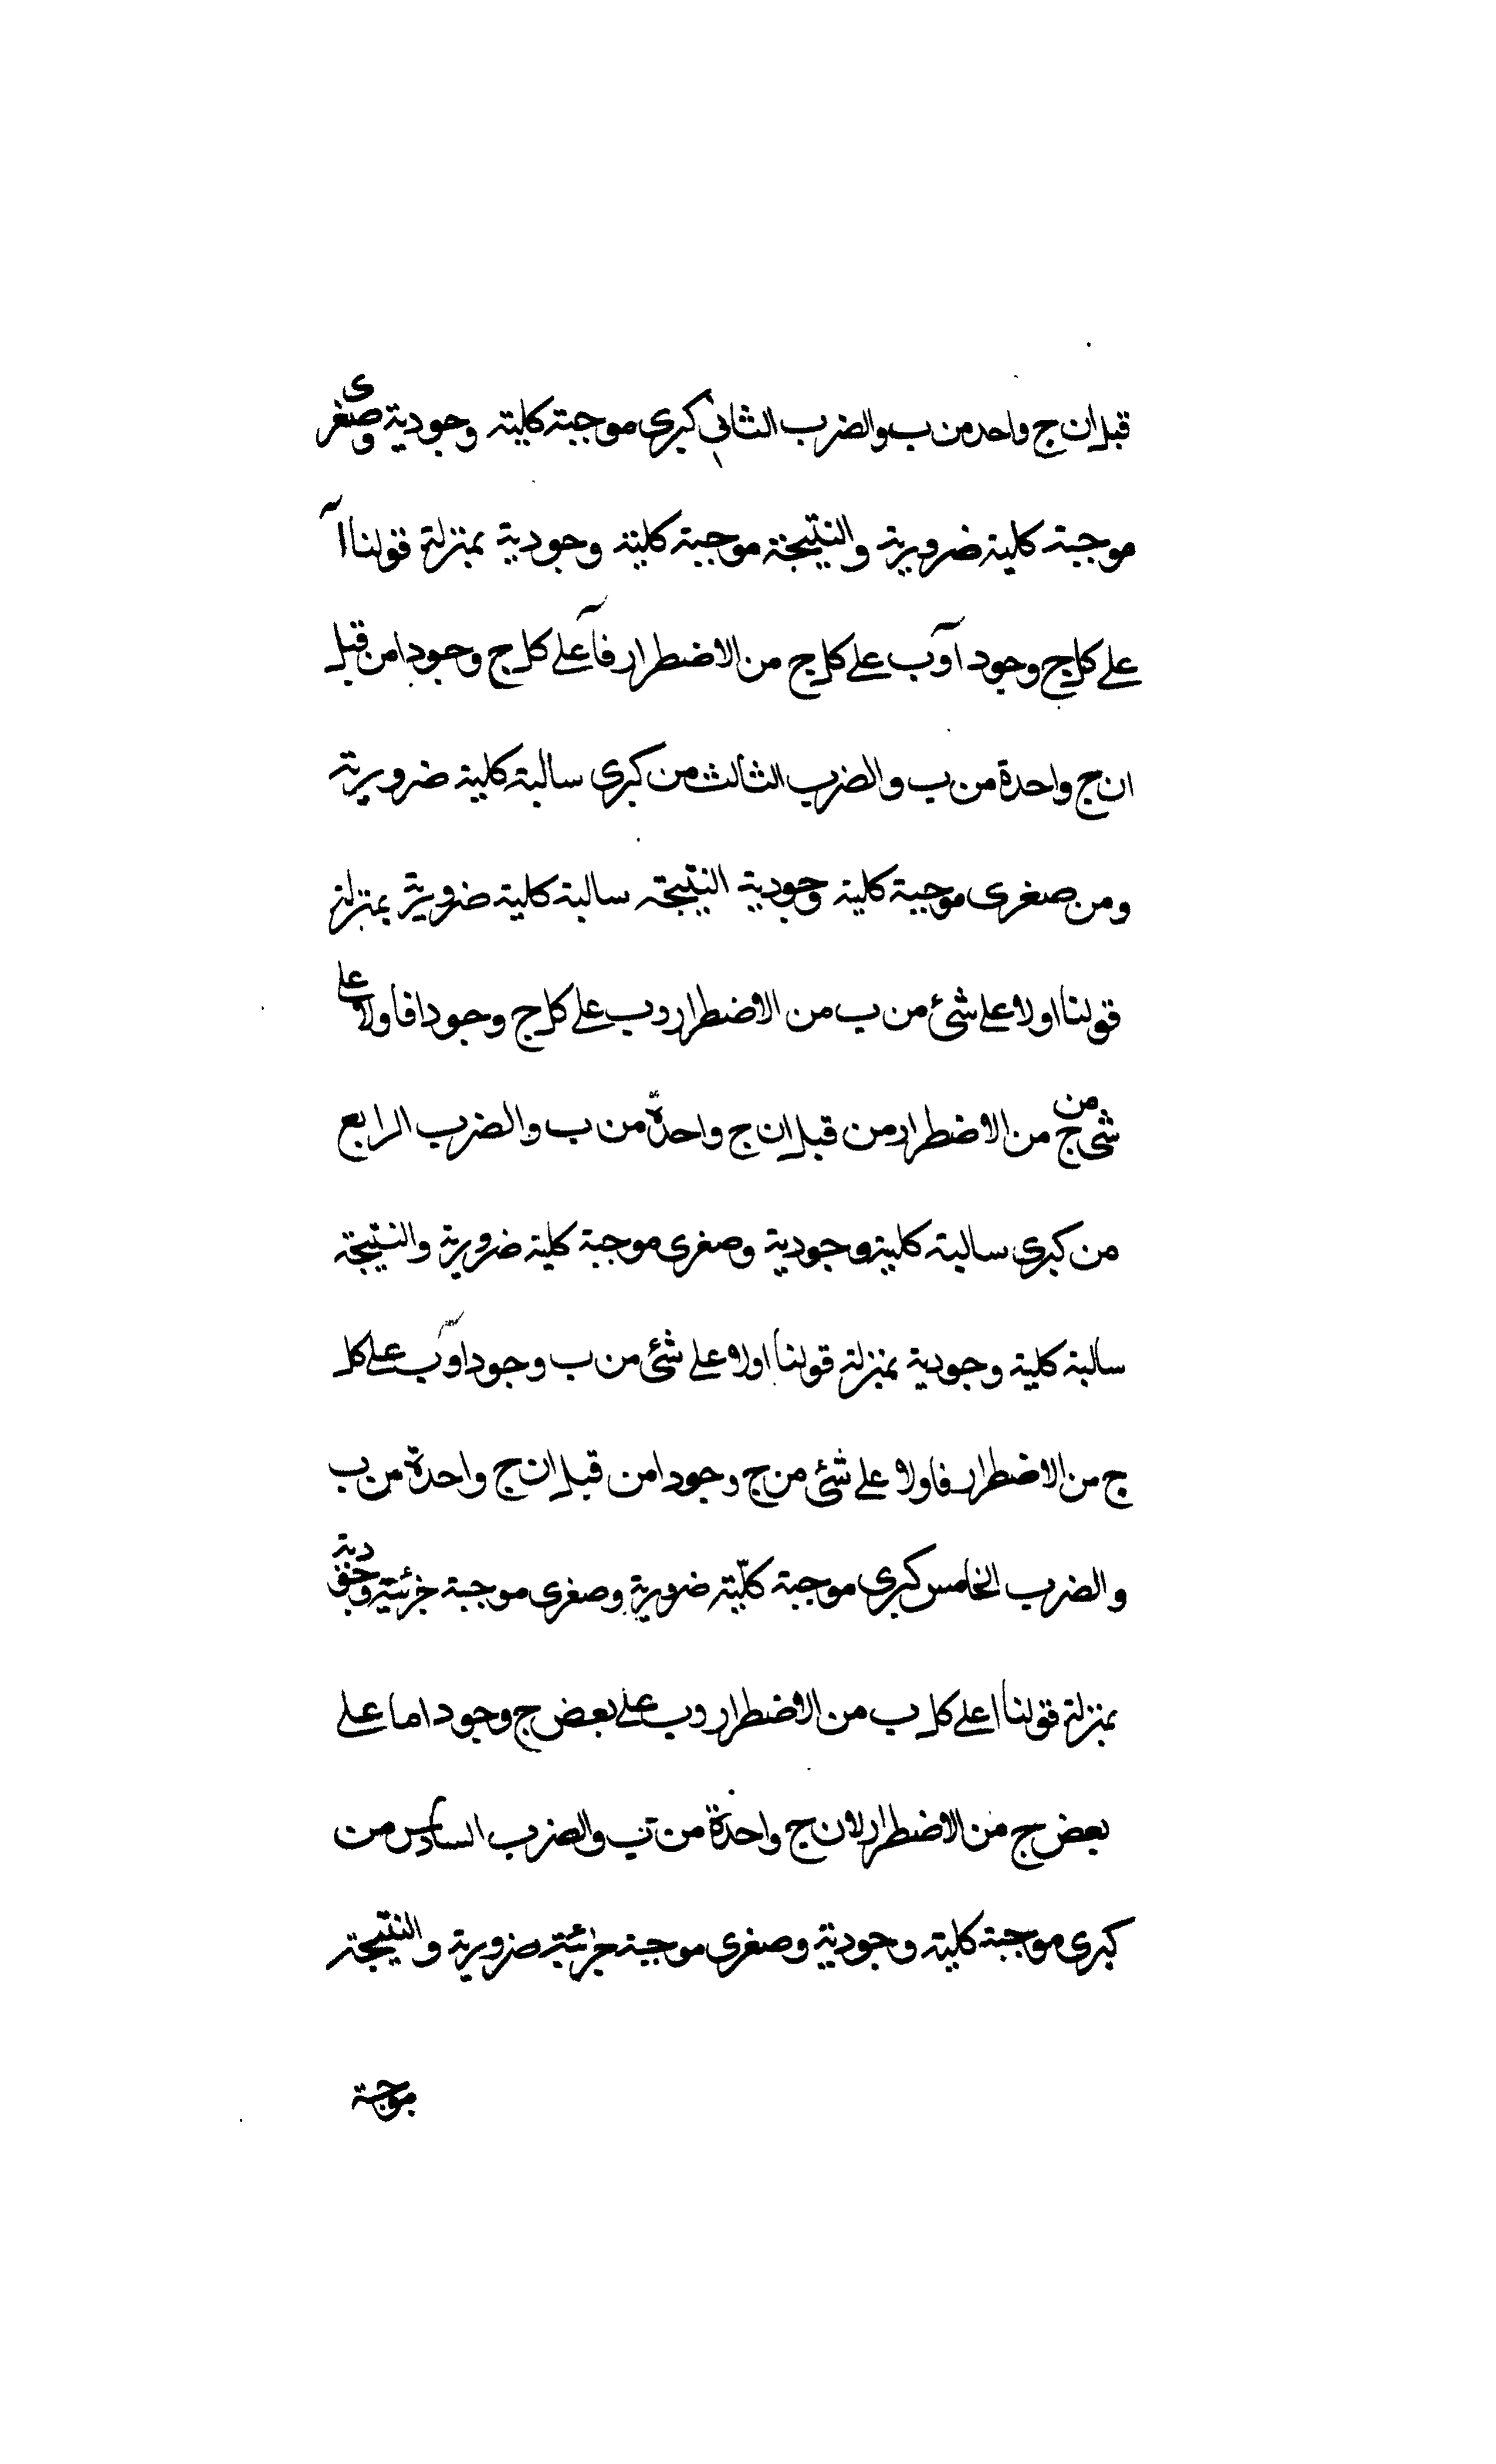 قبل ان ج واحد من ب والضرب الثاني كبرى موجبة كلية وجودية وصغرى
موجبة كلية ضرورية والنتيجة موجبة كلية وجودية بمنزلة قولنا اآ
على كل ج وجود آوب على كل ج من الاضطرار فآ على كل ج وجودا من قبل
ان ج واحدة من ب والضرب الثالث من كبرى سالبة كلية ضرورية
ومن صغرى موجبة كلية وجودية النتيجة سالبة كلية ضرورية بمنزلة
قولنا اولا على شئ من ب من الاضطرار وب على كل ج وجودا فاولا على
شئ من ج من الاضطرار من قبل ان ج واحدة من ب والضرب الرابع
من كبرى سالبة كلية وجودية وصغرى موجبة كلية ضرورية والنتيجة
سالبة كلية وجودية بمنزلة قولنا اولا على شئ من ب وجودا وب على كل
ج من الاضطرار فاولا على شئ من ج وجودا من قبل ان ج واحدة من ب
والضرب الخامس كبرى موجبة كلّية ضرورية وصغرى موجبة جزئية وجودية
بمنزلة قولنا ا على كل ب من الاضطرار وب على بعض ج وجودا ما على
بعض ج من الاضطرار لان ج واحدة من ب والضرب السادس من
كبرى موجبة كلية وجودية وصغرى موجبة جزئية ضرورية والنتيجة
موجبة